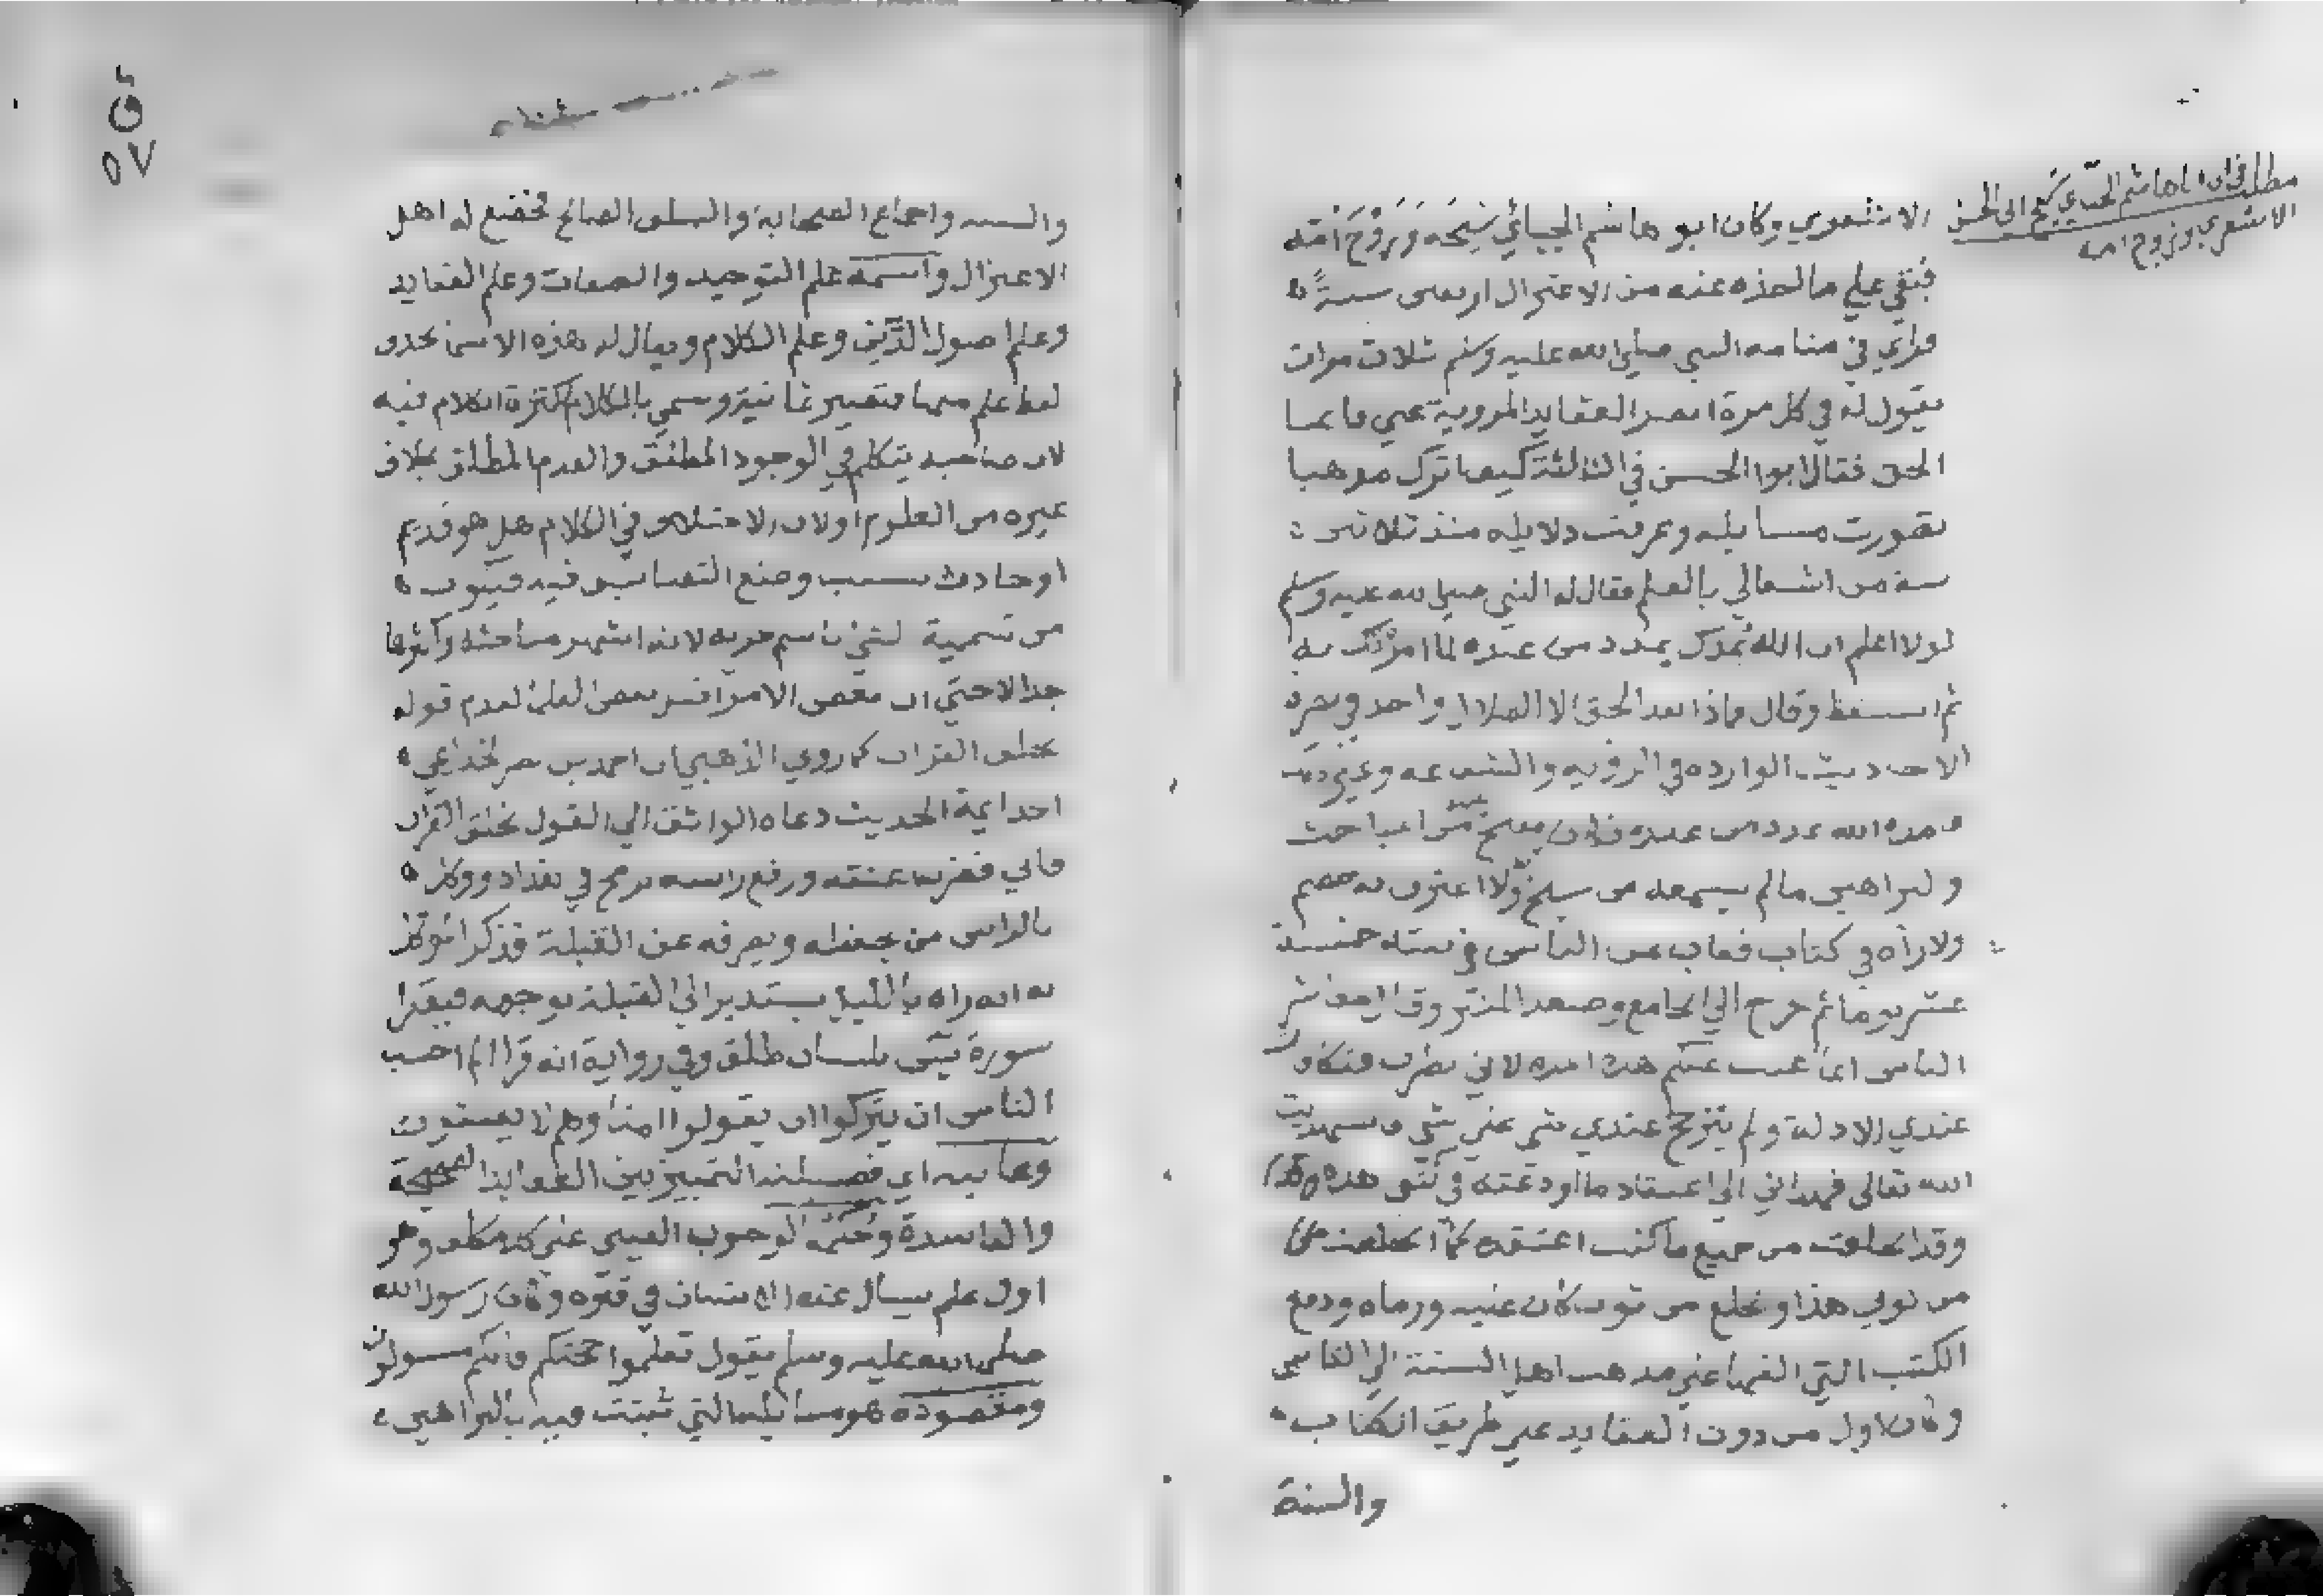 الاشعري وكان ابو هاشم الجبائي شيخه وزوج امه
فبقي علي ما اخذه عنه من الاعتزال اربعين سنة
فراي في منامه النبي صلي الله عليه وسلم ثلاث مرات
يقول له في كل مرة انصر العقايد المروية عني فانها
الحق فقال ابو الحسن في الثالثة كيف اترك مذهبا
تصورت مسايله وعرفت دلايله منذ ثلاثين
سنة من اشتغالي بالعلم فقال له النبي صلي الله عليه وسلم
لولا اعلم ان الله يمدك بمدد من عنده لما امرتك به
ثم استيقظ وقال فماذا بعد الحق الا الضلال واخذ في نصرة
الاحاديث الوارده في الرؤيه والشفاعه وغير ذلك
فمده الله بمدد من عنده فكان يفتح عليه من المباحث
والبراهين مالم يسمعه من شيخ ولا اعترف به خصم
ولا راه في كتاب فغاب عن الناس في بيته خمسة
عشر يوما ثم خرج الي الجامع وصعد المنبر وقال معاشر
الناس انما غبت عنكم هذه المده لاني نظرت فتكافات
عندي الادلة ولم يترجح عندي شي علي شي فاستهديت
الله تعالى فهداني الي اعتقاد ما اودعته في كتبي هذه
وقد انخلعت من جميع ما كنت اعتقده كما انخلعت
من ثوبي هذا وانخلع من ثوب كان عليه ورماه ودفع
الكتب التي الفها علي مذهب اهل السنة الي الناس
وكان اول من دون العقايد علي طريق الكتاب
والسنة
مطلب في ان ابا هاشم الجبائي شيخ ابي الحسن
الاشعري وزوج امه
ق
٥٧
والسنه واجماع الصحابة والسلف الصالح فخضع له اهل
الاعتزال واسمه علم التوحيد والصفات وعلم العقايد
وعلم اصول الدين وعلم الكلام ويقال له هذه الاسما بحذف
لفظ علم منها فتصير ثمانية وسمي بالكلام لكثرة الكلام فيه
لان صاحبه يتكلم في الوجود المطلق والعدم المطلق بخلاف
غيره من العلوم اولان الاختلاف في الكلام هل هو قديم
او حادث سبب وضع التصانيف فيه فيكون
من تسمية الشي باسم جزيه لانه اشهر مباحثه واكثرها
جدالا حتي ان بعض الامرا قتل بعض العلما لعدم قوله
بخلق القران كما روي الذهبي ان احمد بن نصر الخزاعي
احد ايمة الحديث دعاه الواثق الي القول بخلق القران
فابي فضرب عنقه ورفع راسه برمح في بغداد ووكل
بالراس من يحفظه ويصرفه عن القبلة فذكر الموكل
به انه راه بالليل يستدير الي القبلة بوجهه فيقرا
سورة يس بلسان طلق وفي رواية انه قرا الم احسب
الناس ان يتركوا ان يقولوا امنا وهم لا يفتنون
وغايته اي فضيلته التمييز بين العقايد الصحيحة
والفاسدة وحكمه الوجوب العيني علي كل مكلف وهو
اول علم يسال عنه الانسان في قبره وكان رسول الله
صلى الله عليه وسلم يقول تعلموا حجتكم فانكم مسولون
ومقصوده هو مسايله التي تثبت فيه بالبراهين